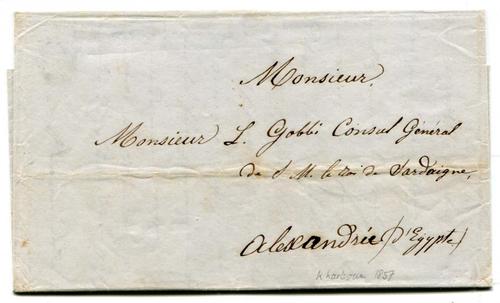 Monsieur.
Monsieur L. Gobbi Consul Général
de S. M. le roi de Sardaigne,
Alexandrie (d'Egypte)
1857